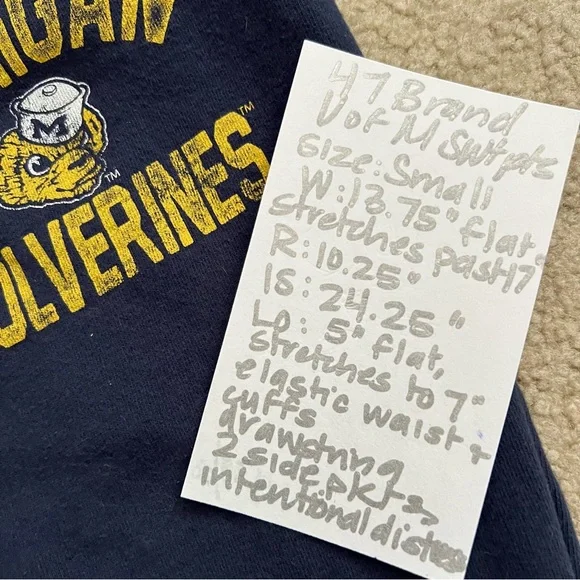 IGAN
M
TM
WOLVERINES™
47 Brand
U of M Swtpts
Size: Small
W: 13.75" flat
stretches past 17"
R: 10.25"
IS: 24.25"
LO: 5" flat,
stretches to 7"
elastic waist +
cuffs
drawstring
2 side pkts,
intentional distress